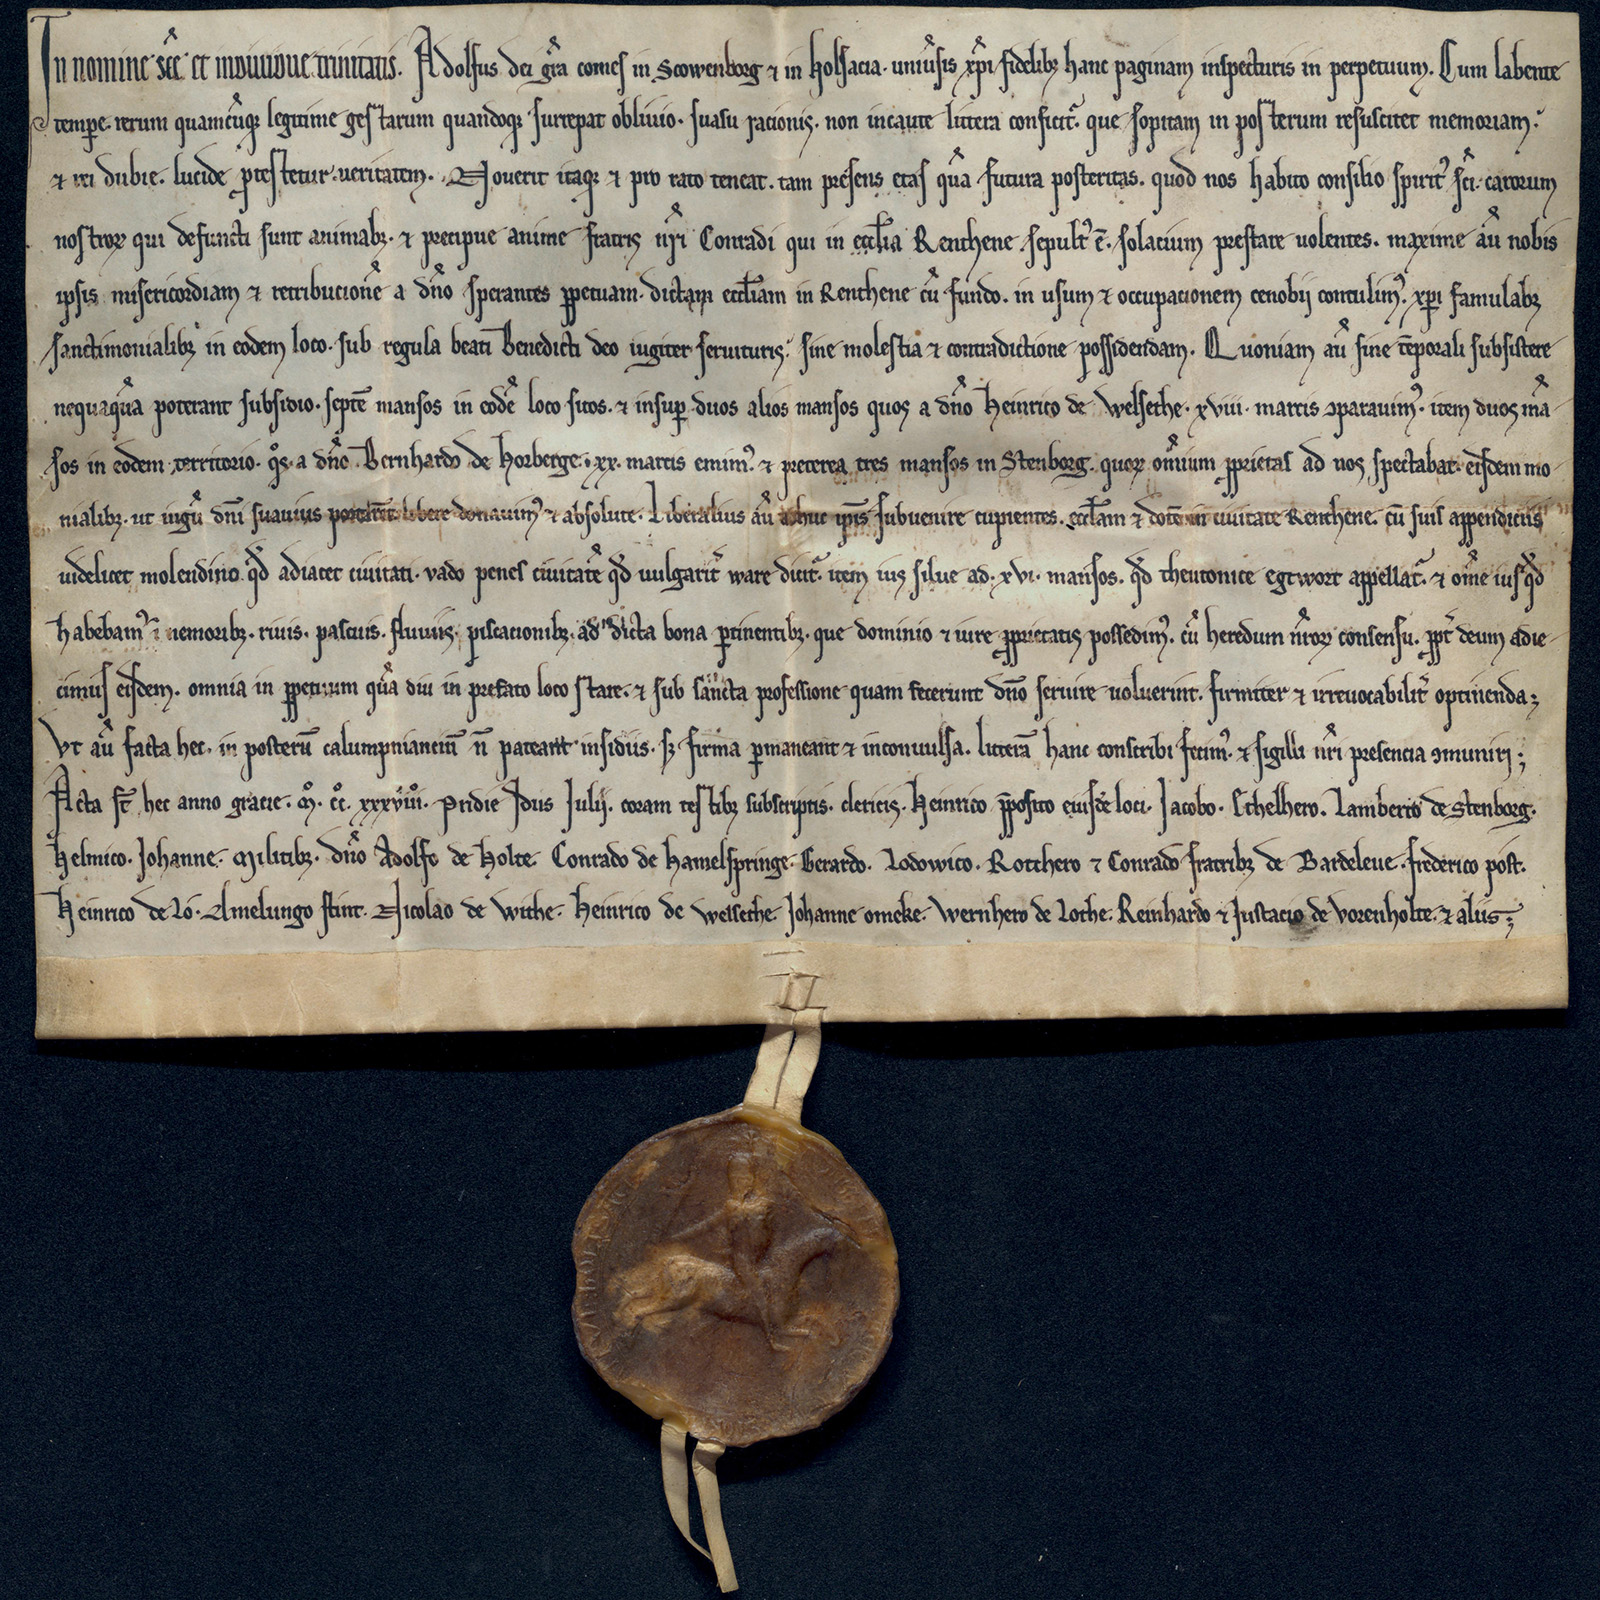 In nomine sc̄e et indiuidue trinitatis. Adolfus dei gr̄a comes in Scowenborg ⁊ in holsacia. uniu̓sis xp̄i fidelibꝫ hanc paginam inspecturis in perpetuum. Cum labente
temꝑe. rerum quamcūqꝫ legitime gestarum quandoqꝫ surrepat obliuio. suasu racionis. non incaute littera conficit᷑. que sopitam in posterum resuscitet memoriam.
⁊ rei dubie. lucide ꝓtestetur ueritatem. Nouerit itaqꝫ ⁊ pro rato teneat. tam presens etas qua futura posteritas. quod nos habito consilio spirit᷒ sc̄i. carorum
nostroꝝ qui defuncti sunt animabꝫ. ⁊ precipue anime fratris nr̄i Conradi qui in eccl̄ia Renthene sepult᷒ ē. solacium prestare uolentes. maxime aū nobis
ipsis misericordiam ⁊ retribucionē a dn̄o sperantes ꝑpetuam. dictam eccl̄iam in Renthene cū fundo. in usum ⁊ occupacionem cenobij contulim᷒. xp̄i famulabꝫ
sanctimonialibꝫ in eodem loco. sub regula beati Benedicti deo iugiter seruituris. sine molestia ⁊ contradictione possidendam. Quoniam aū sine tēporali subsistere
nequaquā poterant subsidio. septē mansos in eodē loco sitos. ⁊ insuꝑ duos alios mansos quos a dn̄o Heinrico de Welsethe. xviii. marcis ꝯparauim᷒. item duos mā-
sos in eodem territorio. qͦs. a dn̄o Bernhardo de Horberge. xx. marcis emim᷒. ⁊ preterea tres mansos in Stenborg. quoꝝ omnium ꝓprietas ad nos spectabat. eisdem mo-
nialibꝫ. ut iugū dn̄i suauius portarēt libere donauim᷒ ⁊ absolute. Liberalius aū adhuc ip̄is subuenire cupientes. eccl̄am ⁊ dotē in ciuitate Renthene. cū suis appendiciis
uidelicet molendino qd̄ adiacet ciuitati. vado penes ciuitatē qd̄ uulgarit̓ ware dicit᷑. item ius silue ad. xvi. mansos. qd̄ theutonice egtwort appellat᷑. ⁊ om̄e ius qd̄
habebam᷒ ī nemoribꝫ. riuis. pascuis. fluuiis. piscacionibꝫ. ad dicta bona ꝑtinentibꝫ. que dominio ⁊ iure ꝓprietatis possedim᷒. cū heredum nr̄oꝝ consensu. ꝓpt̓ deum adie-
cimus eisdem. omnia in ꝑpetuum quā diu in prefato loco stare. ⁊ sub sancta professione quam fecerunt dn̄o seruire uoluerint. firmiter ⁊ irreuocabilit̓ optinenda;
Vt aū facta hec. in posterū calumpnianciū n̄ pateant insidiis. sꝫ firma ꝑmaneant ⁊ inconuulsa. litterā hanc conscribi fecim᷒. ⁊ sigilli nr̄i presencia ꝯmuniri;
Acta st̄ hec anno gracie. mͦ. ccͦ. xxxviiiͦ. Pridie Idus Iulij. coram testibꝫ subscriptis. clericis. Heinrico ꝓposito eiusdē loci. Jacobo. Ethelhero. Lamberto de Stenborg.
Helmico. Johanne. Militibꝫ. dn̄o Adolfo de Holte. Conrado de Hamelspringe. Gerardo. Lodowico. Rotthero ⁊ Conrado fratribꝫ de Bardeleue. frederico post.
Heinrico de Lo. Amelungo stint. Nicolao de withe. Heinrico de welsethe. Johanne omeke. Wernhero de Lothe. Reinhardo ⁊ Justacio de Vorenholte. ⁊ aliis;